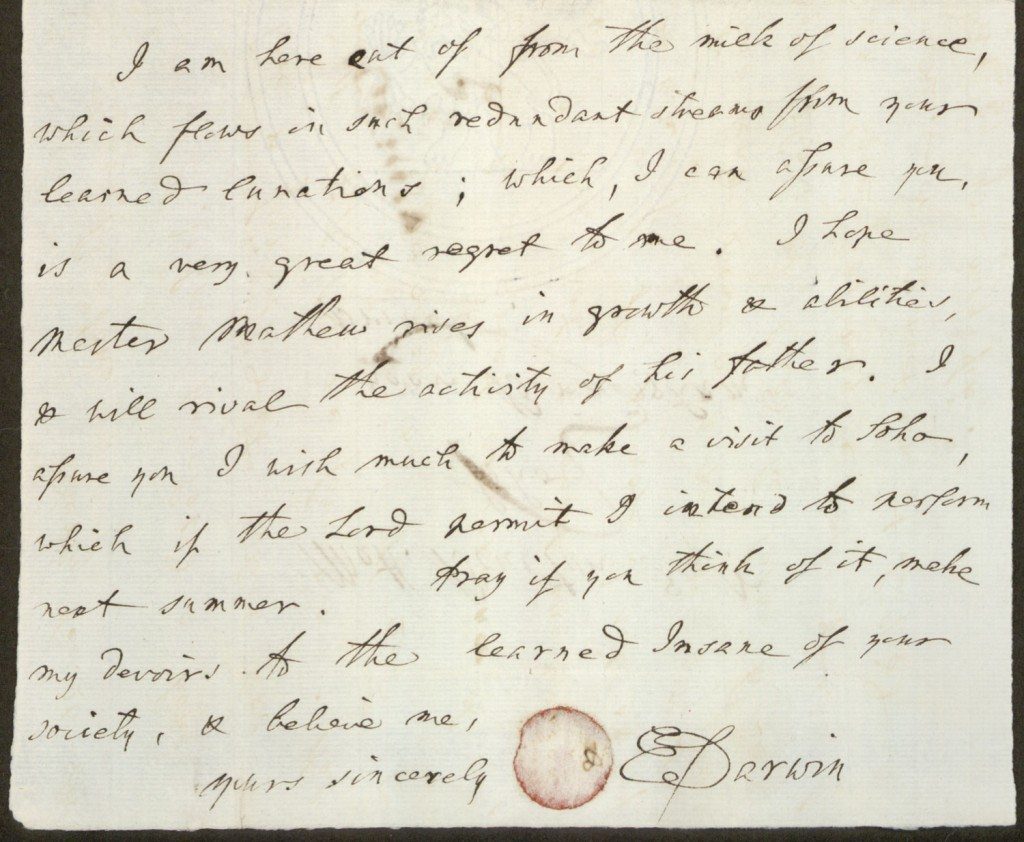 I am here cut of from the milk of science,
which flows in such redundant streams from your
learned lunations; which, I can assure you,
is a very great regret to me. I hope
Master Mathew rises in growth & abilities,
& will rival the activity of his father. I
assure you I wish much to make a visit to Soho,
which if the Lord permit I intend to perform
next summer. Pray if you think of it, make
my devoirs to the learned Insane of your
society, & believe me,
yours sincerely E Darwin